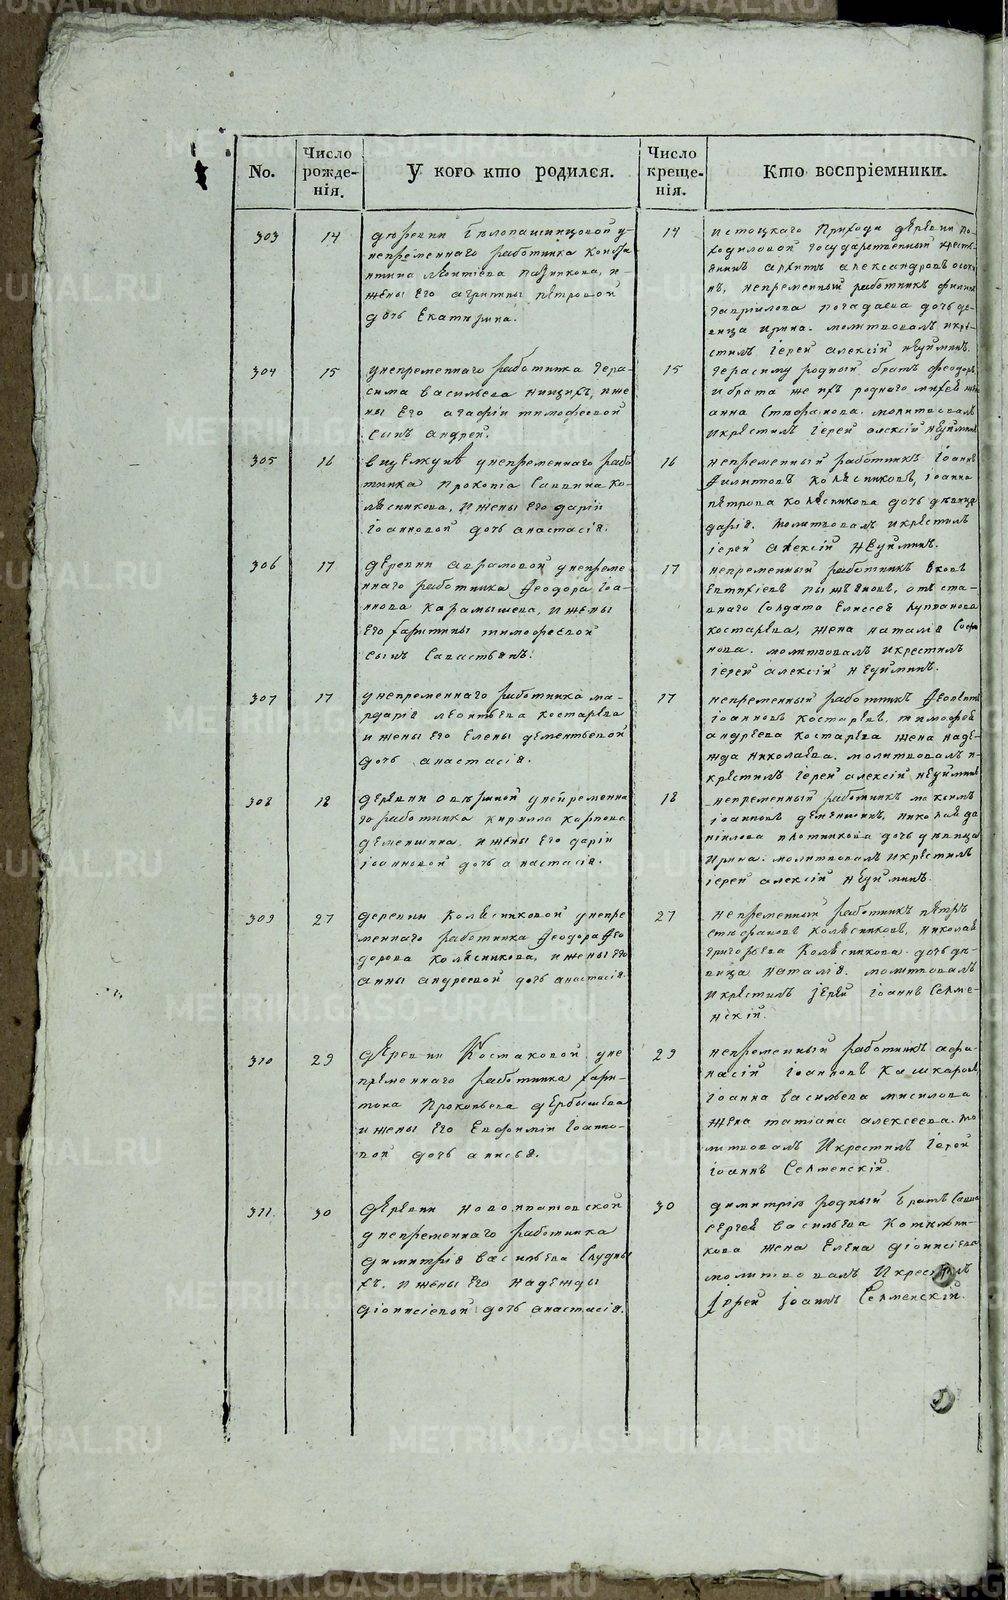 No.
Число рожде-нія.
У кого кто родился.
Число креще-нія.
Кто воспріемники.
303
14
деревни Бѣлопашинцовой у
непременнаго работника Конста
нтина Леонтіева
жены его петровой
дочь Екатирина.
14
истоцкаго Прихода деревни
государственный кресть
янинъ александровъ
непременный работникъ
гаврилова дочь де-
вица ирина. молитвовалъ икре-
стилъ іерей алексій неуйминъ.
304
15
у непременнаго работника гера-
сима васильева нищихъ, иже
ны его агафіи тимофеевой
сынъ андрей.
15
герасиму родный братъ феодоръ
и брата же ихъ роднаго
анна Стефанова. молитвовалъ
икрестилъ іерей алексій неуйминъ
305
16
у непременнаго рабо
тника Прокопіа Саввина ко-
лѣсникова, и жены его даріи
іоанновой дочь анастасія.
16
непременный работникъ іоаннъ
Филиповъ Колѣсниковъ, іоанна
петрова колѣсникова дочь дѣвица
дарія. молитвовалъ икрестилъ
іерей алексій неуйминъ.
306
17
деревни аврамовой у непреме
ннаго работника Феодора іоа-
ннова Карамышева, и жены
его тимофеевой
сынъ Савастьянъ.
17
непременный работникъ яковъ
отъ ста-
внаго солдата Елисея
костарева, жена наталія
молитвовалъ икрестилъ
іерей алексій неуйминъ.
307
17
у непременнаго работника ма-
рдаріа леонтьева костарева
и жены его елены дементьевой
дочь анастасія.
17
непременный работникъ
іоанновъ костаревъ, тимофея
андреева костарева жена наде-
жда николаева. молитвовалъ и-
крестилъ іерей алексій неуйминъ
308
18
деревни у непременна
го работника кирилла карпова
деменшина, и жены его даріи
іоанновой дочь анастасія.
18
непременный работникъ максимъ
іоанновъ деменшинъ, николая да
ніилова плотникова дочь дѣвица
ирина. молитвовалъ икрестилъ
іерей алексій неуйминъ.
309
27
деревни Колѣсниковой у непре
меннаго работника Феодора Фео
дорова колѣсникова, и жены его
анны андреевой дочь анастасія.
27
непременный работникъ петръ
стефановъ Колѣсниковъ, николая
григорьева Колѣсникова дочь дѣ-
вица наталія. молитвовалъ
икрестилъ іерей іоаннъ Селме-
нскій.
310
29
деревни Космаковой у не
пременнаго работника хари-
тона Прокопьева дербышева
и жены его Евфиміи іоанно-
вой дочь анисья.
29
непременный работникъ афа-
насій іоанновъ
іоанна васильева мисилова
жена татіана алексеева. мо
литвовалъ икрестилъ іерей
іоаннъ Селменскій.
311
30
деревни новоипатовской
у непременнаго работника
димитрія васильева Слудны
хъ. и жены его надежды
діонисіевой дочь анастасія.
30
димитрію родный братъ Савва
сергея васильева
жена елена діонисіева
молитвовалъ икрестилъ
іерей іоаннъ Селменскій.
METRIKI.GASO-URAL.RU